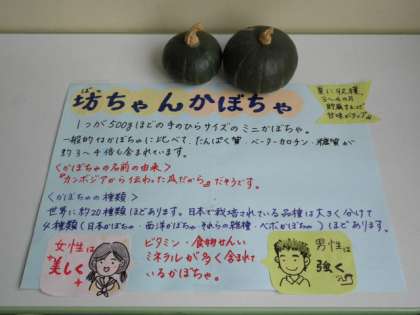 坊ちゃんかぼちゃ
ば
夏に収穫
3〜4カ月
貯蔵すると
甘味がアップ
1つが500gほどの手のひらサイズのミニかぼちゃ。
一般的なかぼちゃに比べて、たんぱく質、ベーターカロテン、糖質が
約3〜4倍も含まれています。
〈かぼちゃの名前の由来〉
"カンボジアから伝わった瓜だから"だそうです。
〈かぼちゃの種類〉
世界に約20種類ほどあります。日本で栽培されている品種は大きく分けて
4種類(日本かぼちゃ・西洋かぼちゃ・それらの雑種・ペポかぼちゃ)ほどあります。
女性は
美しく
ビタミン・食物せんい
ミネラルが多く含まれて
いるかぼちゃ。
男性は
強く